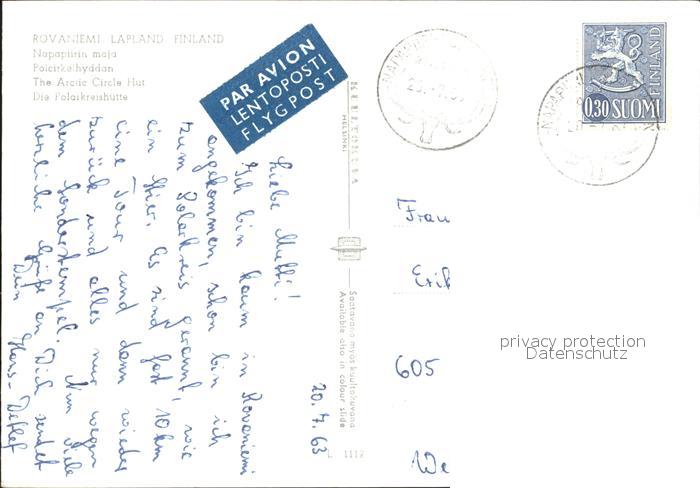 ROVANIEMI LAPLAND FINLAND
Napapiirin maja
Polcirkelhyddan
The Arctic Circle Hut
Die Polarkreishütte
PAR AVION
LENTOPOSTI
FLYGPOST
FINLAND
0.30 SUOMI
HELSINKI
Saatavana myös kuultokuvana
Available also in colour slide
L 1112
20.7.63
Liebe Mutti!
Ich bin kaum in Rovaniemi
angekommen, schon bin ich
zum Polarkreis gerannt, wie
ein Stier. Es sind fast 10km
eine Tour und dann wieder
zurück und alles nur wegen
dem Sonderstempel. Nun viele
herzliche Grüße an Dich sendet
Dein Hans-Detlef
Frau
Erik
605
We
privacy protection
Datenschutz